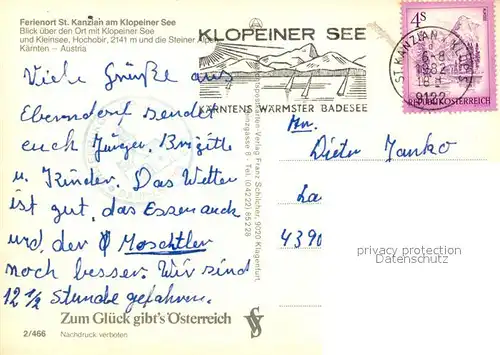 Ferienort St. Kanzian am Klopeiner See
Blick über den Ort mit Klopeiner See
und Kleinsee, Hochobir, 2141 m und die Steiner Alpen
Kärnten – Austria
Viele Grüße aus
Eberndorf sendet
euch Jürgen, Brigitte
u. Kinder. Das Wetter
ist gut, das Essen auch
und der Moschtler
noch besser. Wir sind
12 1/2 Stunde gefahren.
Zum Glück gibt's Österreich
2/466
Nachdruck verboten
KLOPEINER SEE
KÄRNTENS WÄRMSTER BADESEE
ST. KANZIAN
1982
9122
4 S
REPUBLIK ÖSTERREICH
Verlag Franz Schilcher, 9020 Klagenfurt
Tel. (04222) 85228
An.
Dieter Janko
La
4390
privacy protection
Datenschutz